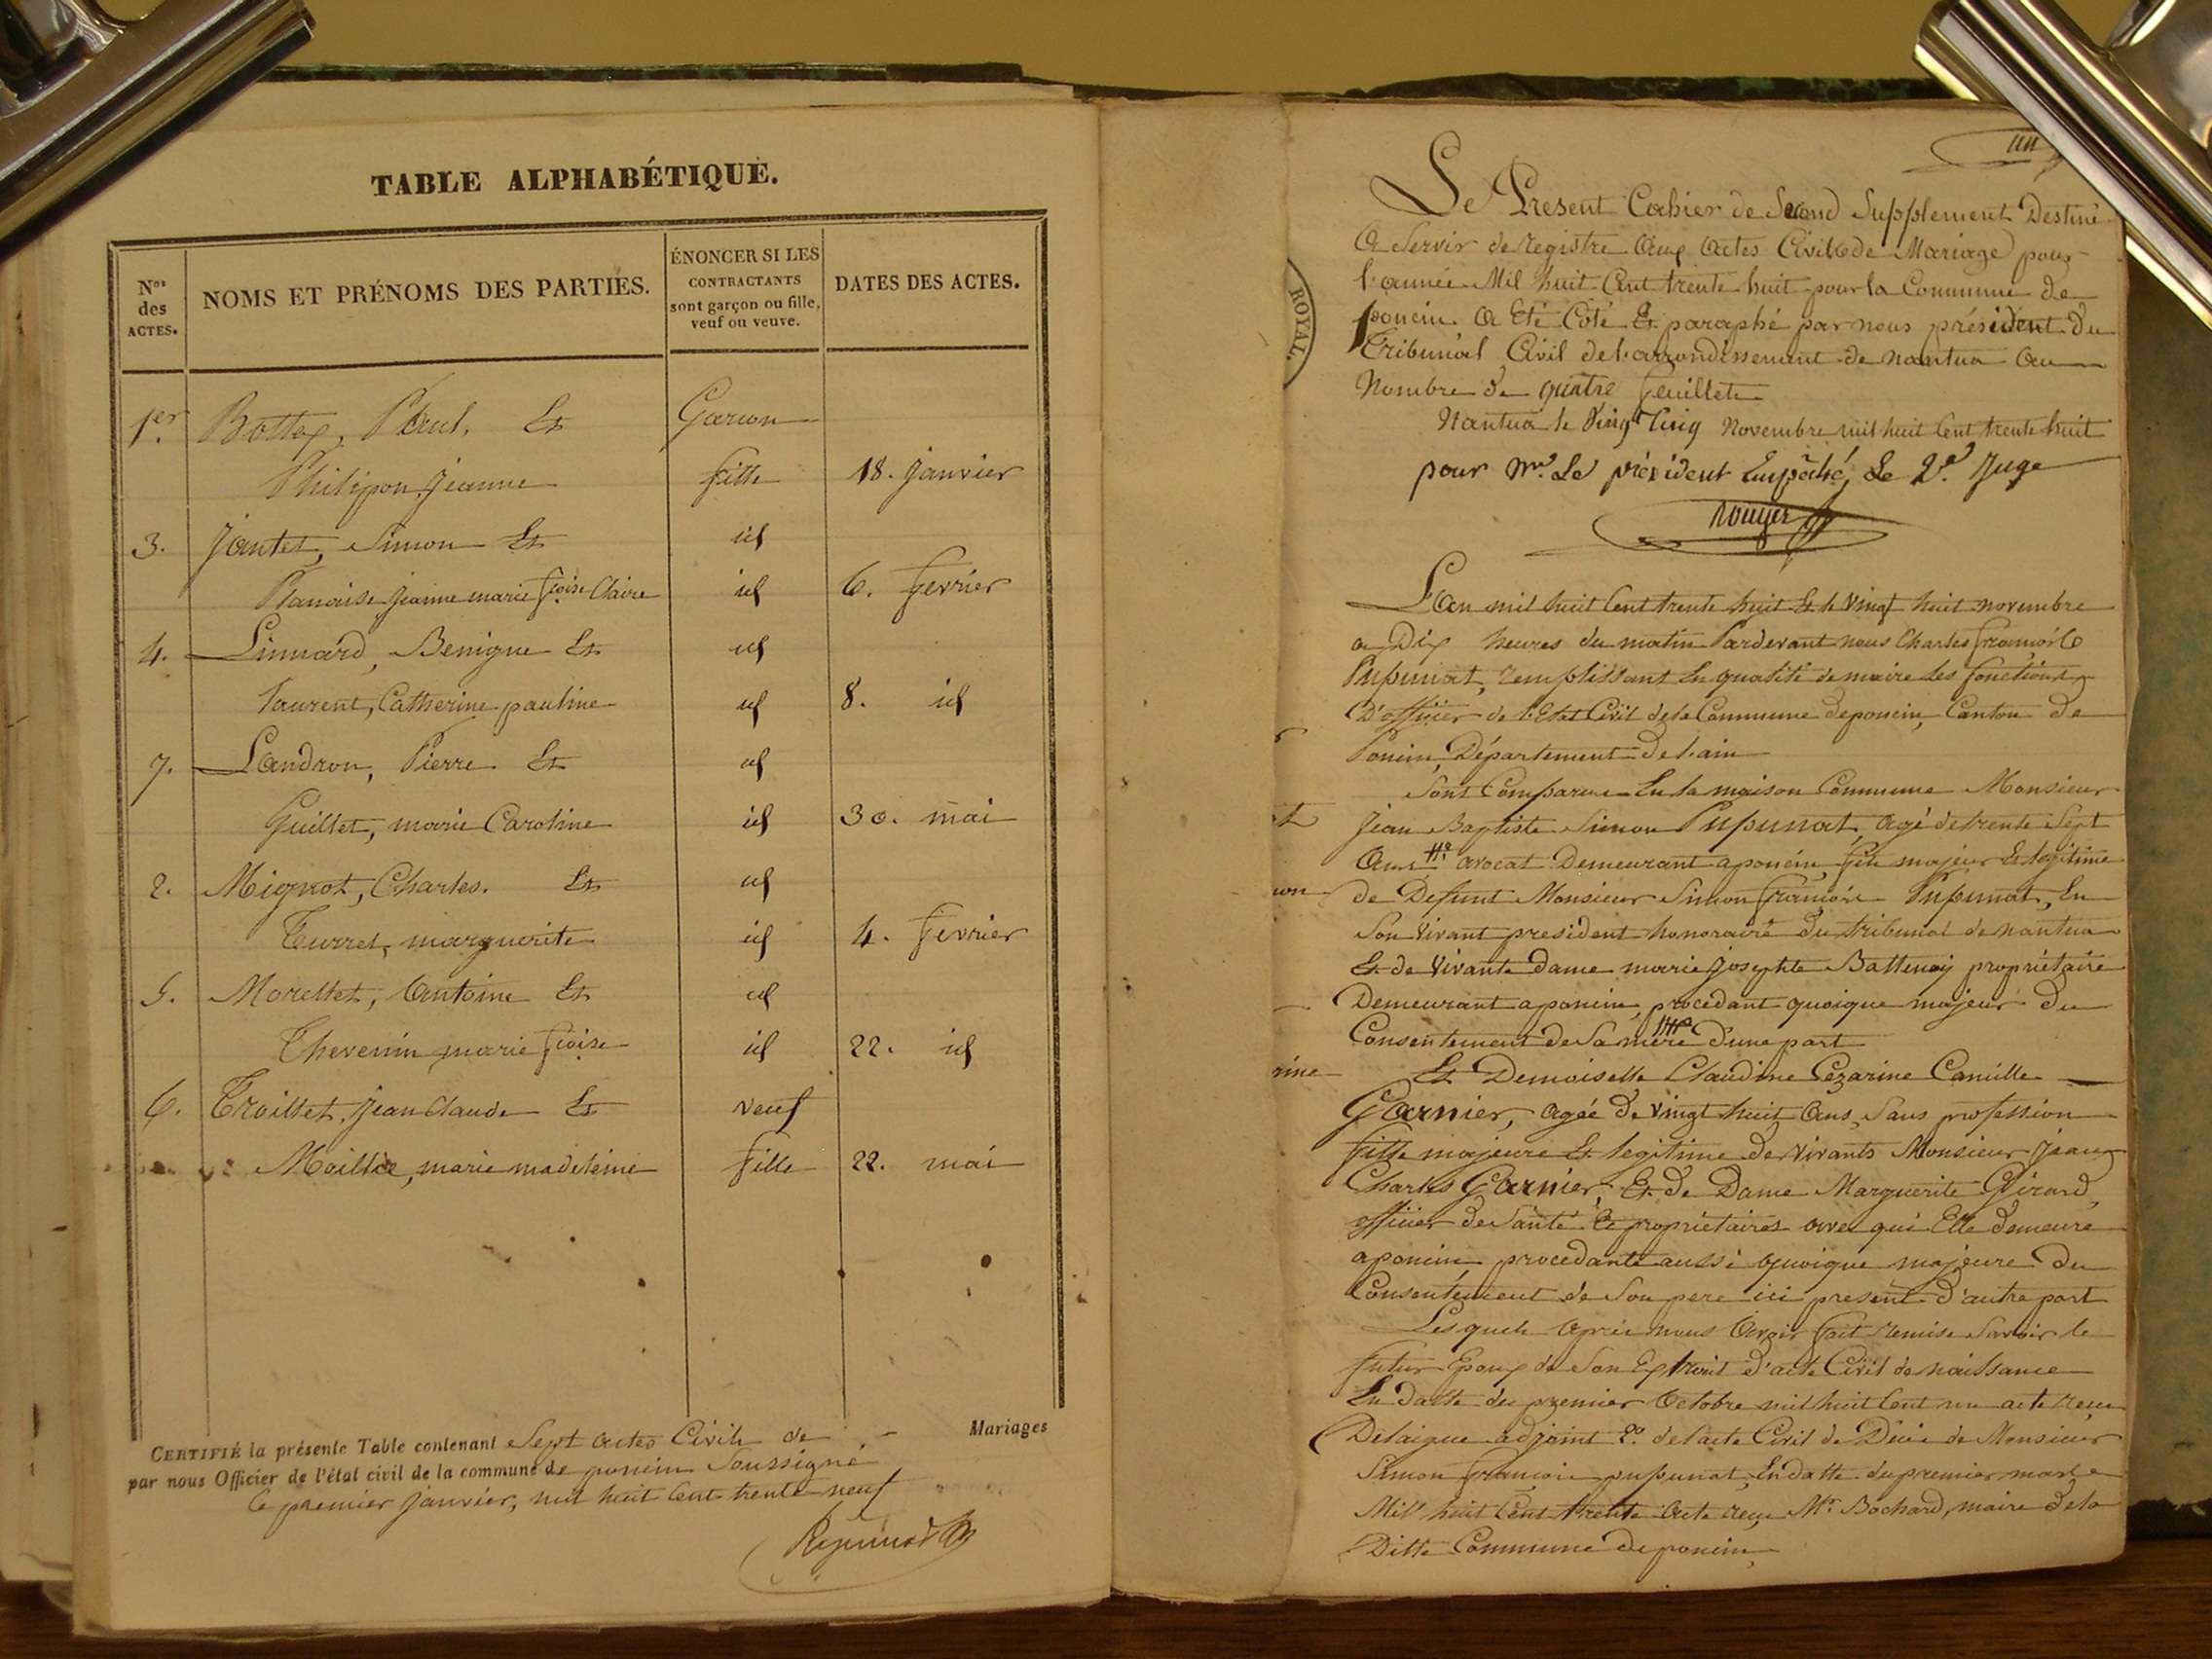 TABLE ALPHABÉTIQUE.
Nos des ACTES.
NOMS ET PRÉNOMS DES PARTIES.
ÉNONCER SI LES CONTRACTANTS sont garçon ou fille, veuf ou veuve.
DATES DES ACTES.
1er Bottex, Paul, Et Garcon
Philipon, Jeanne fille 18. Janvier
3. Jantet, Simon Et id
Planaise Jeanne marie fçoise Claire id 6. fevrier
4. Linnard, Benigne Et id
Laurent, Catherine pauline id 8. id
7. Landron, Pierre Et id
Guillet, marie Caroline id 30. mai
2. Mignot, Charles. Et id
Turrel, marguerite id 4. fevrier
5. Morellet, Antoine Et id
Thevenin, marie fçoise id 22. id
6. Troillet, Jean Claude Et veuf
Maillée, marie madeleine fille 22. mai
CERTIFIÉ la présente Table contenant Sept actes Civils de Mariages
par nous Officier de l'état civil de la commune de poncin Soussigné
le premier Janvier, mil huit Cent trente neuf
ROYAL.
un
Le Present Cahier de Second Supplement Destiné
A Servir de registre Aux Actes Civils de Mariage pour
l'année Mil huit Cent trente huit pour la Commune de
poncin A Eté Coté Et paraphé par nous président du
Tribunal Civil de l'arrondissement de nantua Au
Nombre de quatre feuillets
Nantua le Vingt Cinq Novembre mil huit Cent trente huit
pour Mr. Le président Empêché, Le 2e. Juge
Rouyer
L'an mil huit Cent trente huit Et le vingt huit novembre
a Dix heures du matin Pardevant nous Charles françois
Pupunat, remplissant En qualité de maire les fonctions
D'officier de l'Etat Civil de la Commune de poncin, Canton de
Poncin, Département de l'ain
Sont Comparus En la maison Commune Monsieur
Jean Baptiste Simon Pupunat, Agé de trente Sept
Ans avocat Demeurant a poncin, fils majeur Et legitime
de Defunt Monsieur Simon françois Pupunat, En
Son Vivant president honoraire du tribunal de nantua
Et de Vivante Dame marie Josephte Battenay propriétaire
Demeurant a poncin, procedant quoique majeur du
Consentement de Sa mère D'une part
Et Demoiselle Claudine Cezarine Camille
Garnier, agée de vingt huit Ans, Sans profession
fille majeure Et legitime de Vivants Monsieur Jean
Charles Garnier, Et de Dame Marguerite Girard,
officier de Santé Et propriétaires avec qui Elle demeure
a poncin, procedante aussi quoique majeure du
Consentement de Son pere ici present D'autre part
Lesquels Après nous Avoir fait remise Savoir le
futur Epoux de Son Extrait d'acte Civil de naissance
En Datte du premier Octobre mil huit Cent un acte reçu
Delaigue adjoint 2o. de l'acte Civil de Décès de Monsieur
Simon françois pupunat, En datte du premier mars
Mil huit Cent trente Acte reçu Mr. Bochard, maire de la
Ditte Commune de poncin,